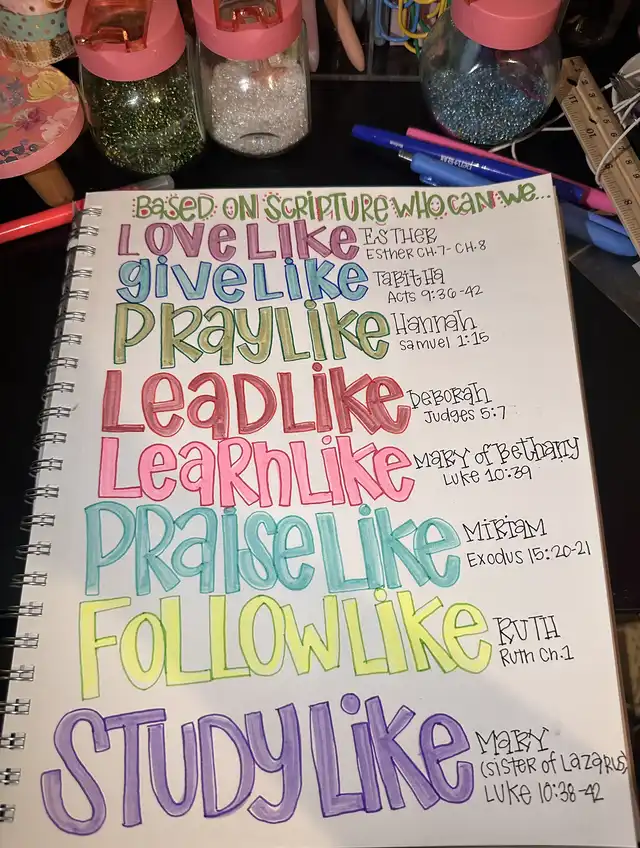 BASED ON SCRIPTURE WHO CAN WE...
LOVE LIKE
ESTHER
Esther CH.7- CH.8
giVE LIKE
TABITHA
Acts 9:36-42
PRAY LiKe
Hannah
Samuel 1:15
LEAD LiKe
DEBORAH
Judges 5:7
LeaRn LiKe
MARY of BETHANY
LUKE 10:39
PRaiSe LiKe
MiRiAM
Exodus 15:20-21
FOLLOW LiKe
RUTH
Ruth Ch.1
STUDY LiKe
MARY
(sister of LAZARUS)
LUKE 10:38-42